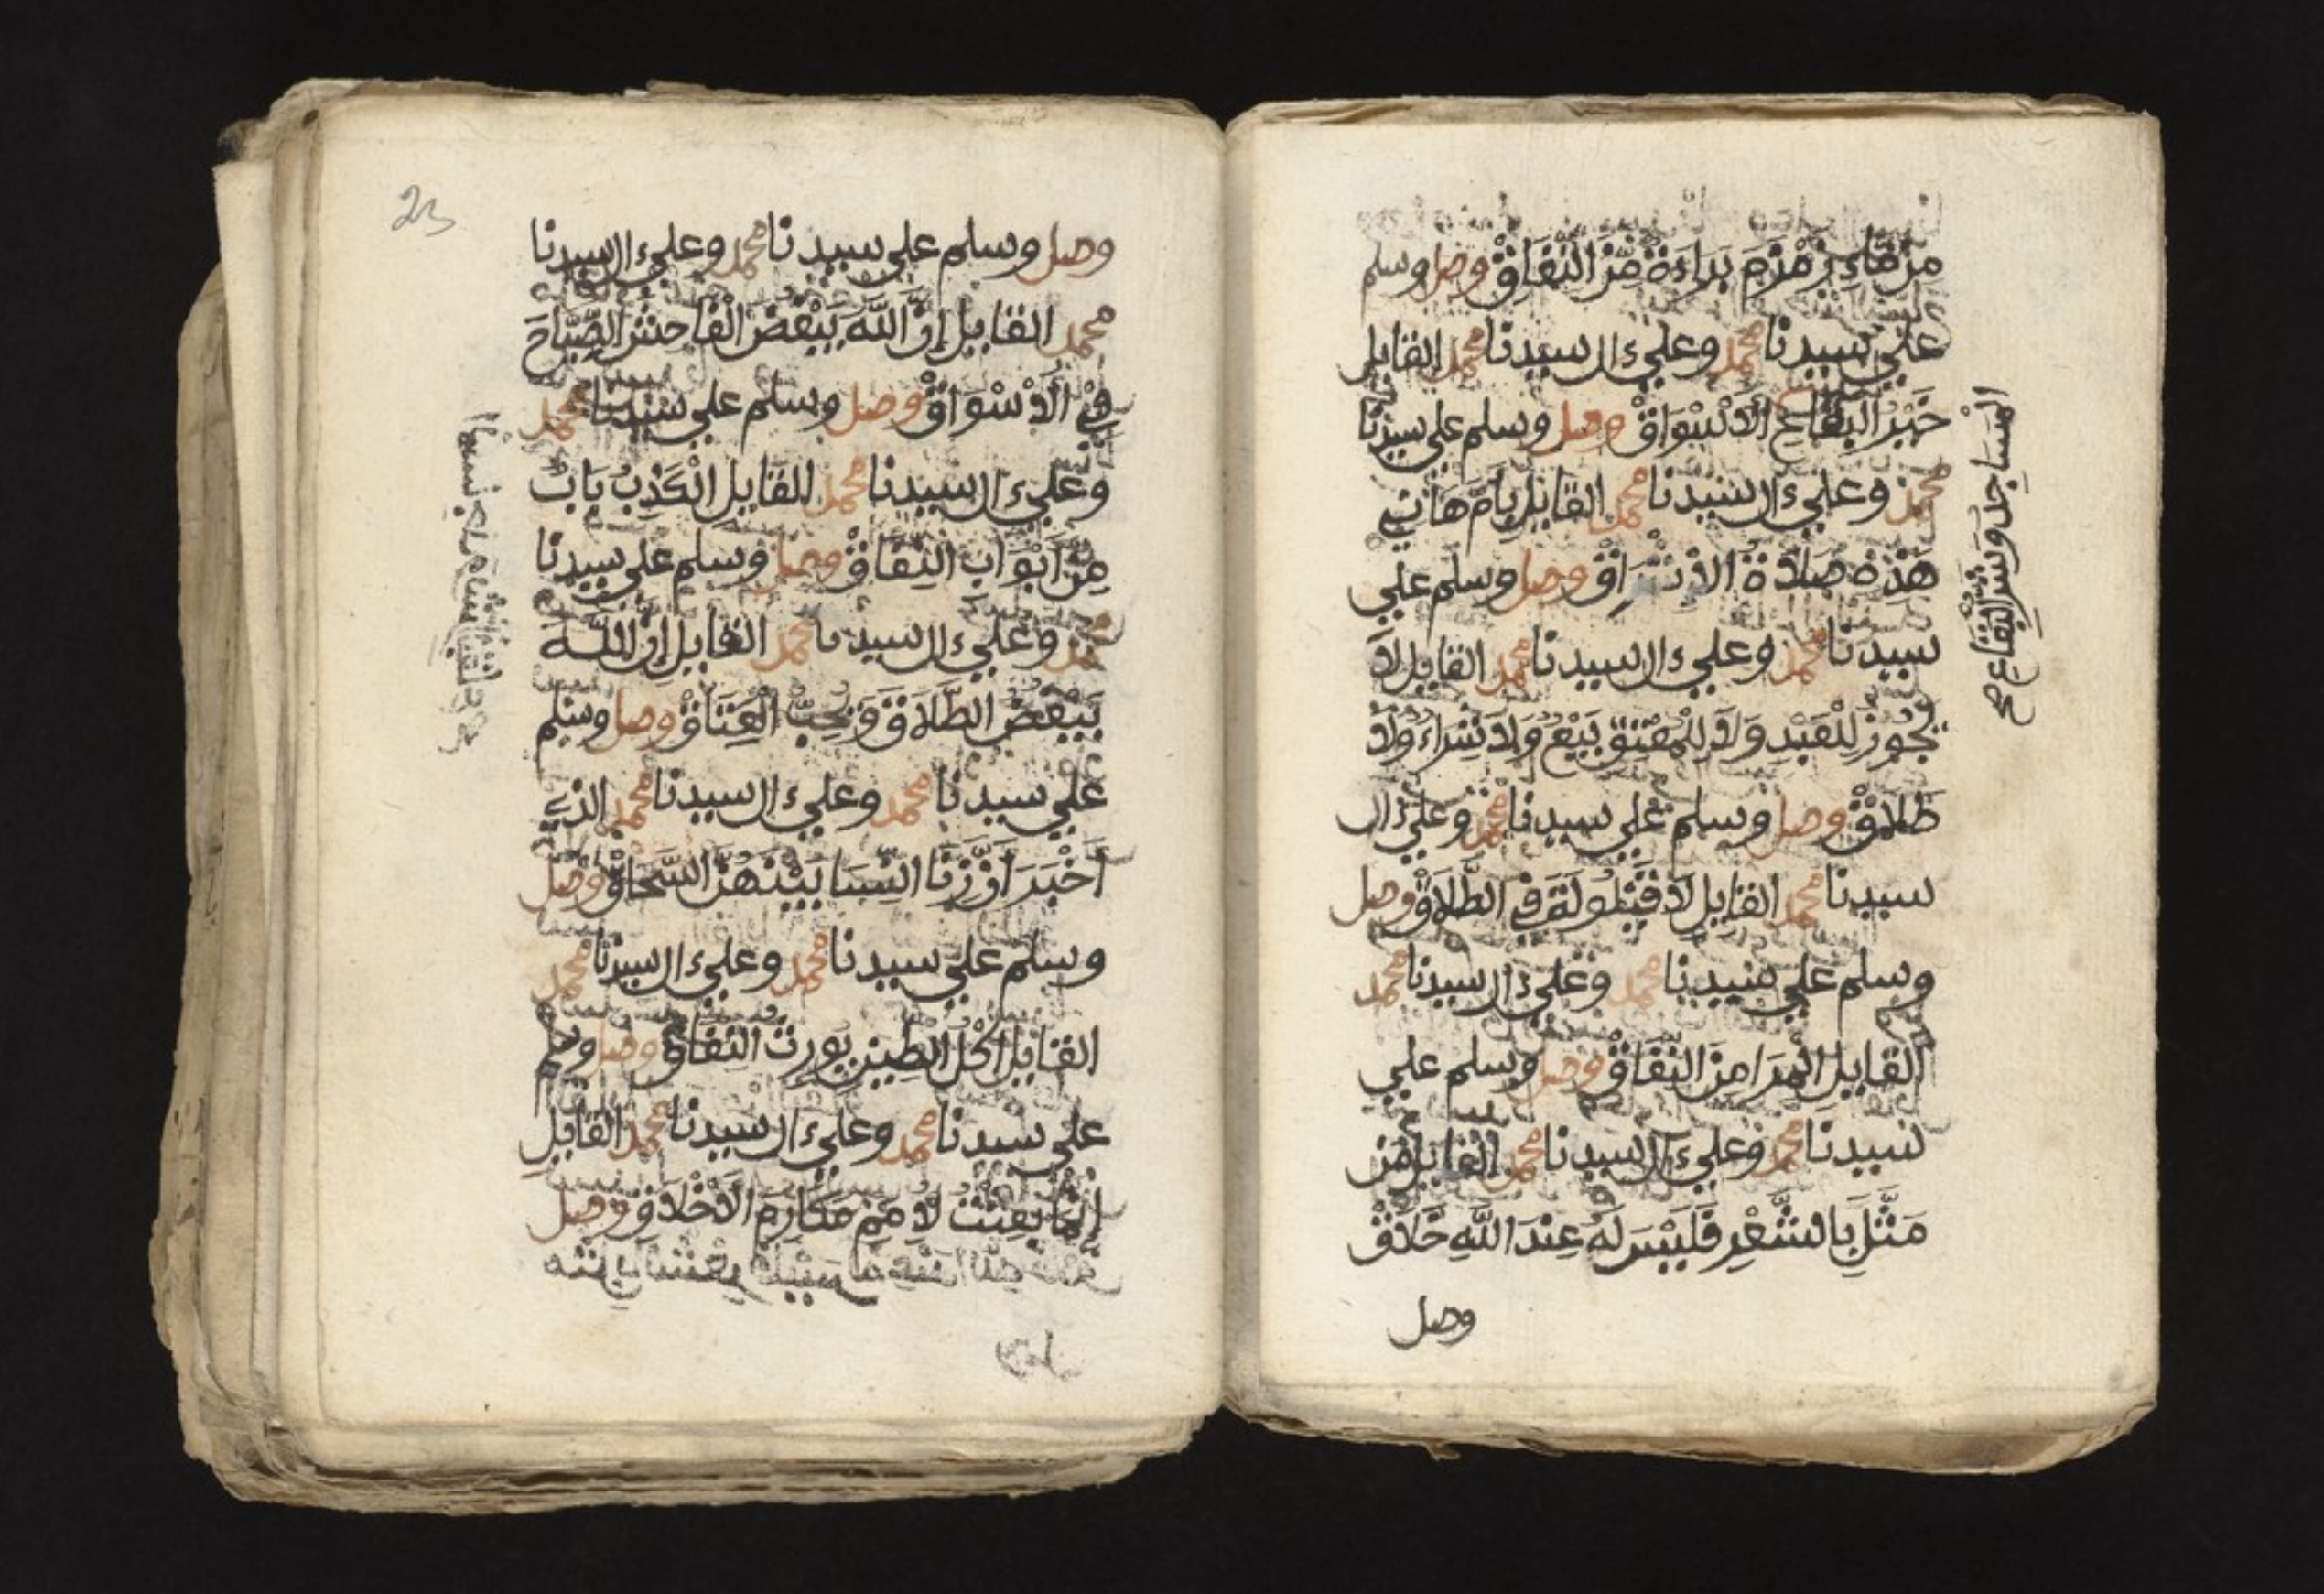 من ماء زمزم براءة من النفاق وصل وسلم
علي سيدنا محمد وعلي ءال سيدنا محمد القايل
خير البقاع الاسواق وصل وسلم علي سيدنا
محمد وعلي ءال سيدنا محمد القايل يا أم هاني
هذه صلاة الإشراق وصل وسلم علي
سيدنا محمد وعلي ءال سيدنا محمد القايل لا
يجوز للعبد ولا للمعتق بيع ولا شراء ولا
طلاق وصل وسلم علي سيدنا محمد وعلي ءال
سيدنا محمد القايل لا في الطلاق وصل
وسلم علي سيدنا محمد وعلي ءال سيدنا محمد
القايل المرا من النفاق وصل وسلم علي
سيدنا محمد وعلي ءال سيدنا محمد القايل من
مثل بالشعر فليس له عند الله خلاق
وصل
المساجد وشر البقاع صح
23
وصل وسلم علي سيدنا محمد وعلي ءال سيدنا
محمد القايل إن الله يبغض الفاحش الصياح
في الأسواق وصل وسلم علي سيدنا محمد
وعلي ءال سيدنا محمد القايل الكذب باب
من أبواب النفاق وصل وسلم علي سيدنا
محمد وعلي ءال سيدنا محمد القايل إن الله
يبغض الطلاق ويحب العتاق وصل وسلم
علي سيدنا محمد وعلي ءال سيدنا محمد الذي
أخبر أن زنا النسا بينهن السحاق وصل
وسلم علي سيدنا محمد وعلي ءال سيدنا محمد
القايل أكل الطين يورث النفاق وصل وسلم
علي سيدنا محمد وعلي ءال سيدنا محمد القايل
إنما بعثت لأتمم مكارم الأخلاق وصل